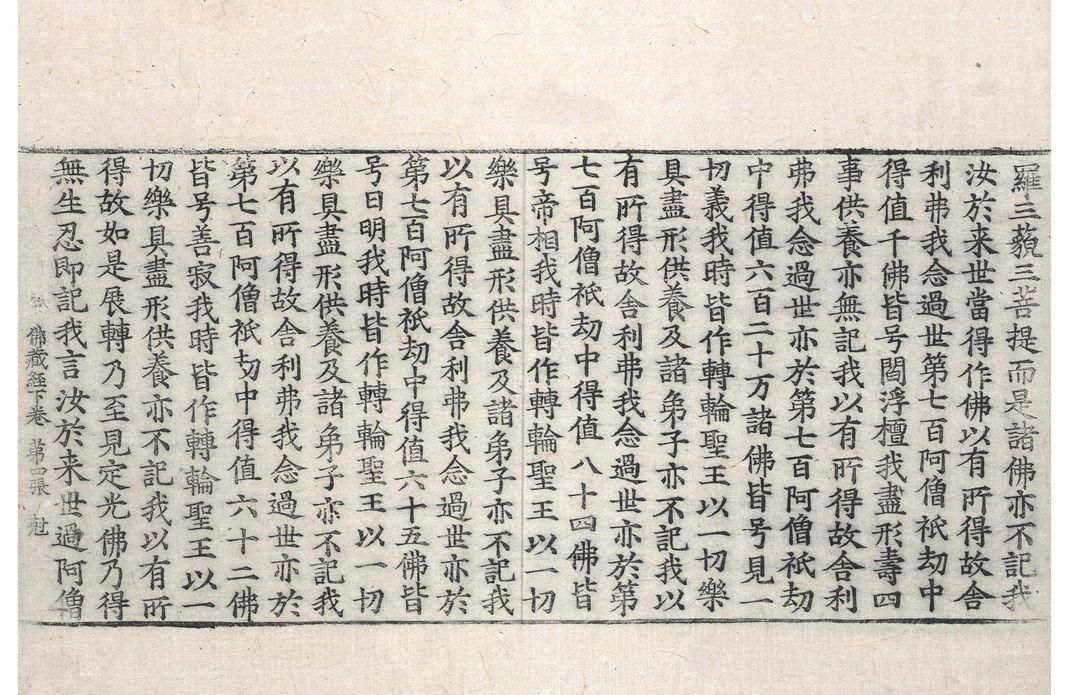 羅三藐三菩提而是諸佛亦不記我
汝於来世當得作佛以有所得故舍
利弗我念過世第七百阿僧祇劫中
得值千佛皆号閻浮檀我盡形壽四
事供養亦無記我以有所得故舍利
弗我念過世亦於第七百阿僧祇劫
中得值六百二十万諸佛皆号見一
切義我時皆作轉輪聖王以一切樂
具盡形供養及諸弟子亦不記我以
有所得故舍利弗我念過世亦於第
七百阿僧祇劫中得值八十四佛皆
号帝相我時皆作轉輪聖王以一切
樂具盡形供養及諸弟子亦不記我
以有所得故舍利弗我念過世亦於
第七百阿僧祇劫中得值六十五佛皆
号日明我時皆作轉輪聖王以一切
樂具盡形供養及諸弟子亦不記我
以有所得故舍利弗我念過世亦於
第七百阿僧祇劫中得值六十二佛
皆号善寂我時皆作轉輪聖王以一
切樂具盡形供養亦不記我以有所
得故如是展轉乃至見定光佛乃得
無生忍即記我言汝於来世過阿僧
佛藏経下卷 第四張